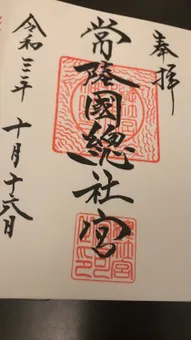 奉拝
常陸國總社宮
令和三年十月十六日